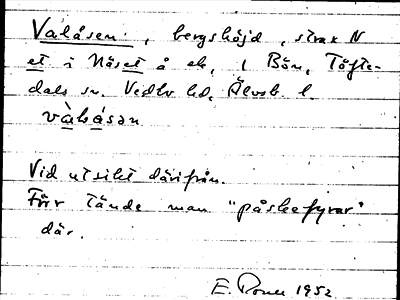 Valåsen, bergshöjd, strax N
et i Näset å ek. 1 Bön, Töfte-
dals sn. Vedbo hd, Älvsb. l.
vàlåsən
Vid utsikt därifrån.
Förr tände man "påskefyrar"
där.
E. 1952